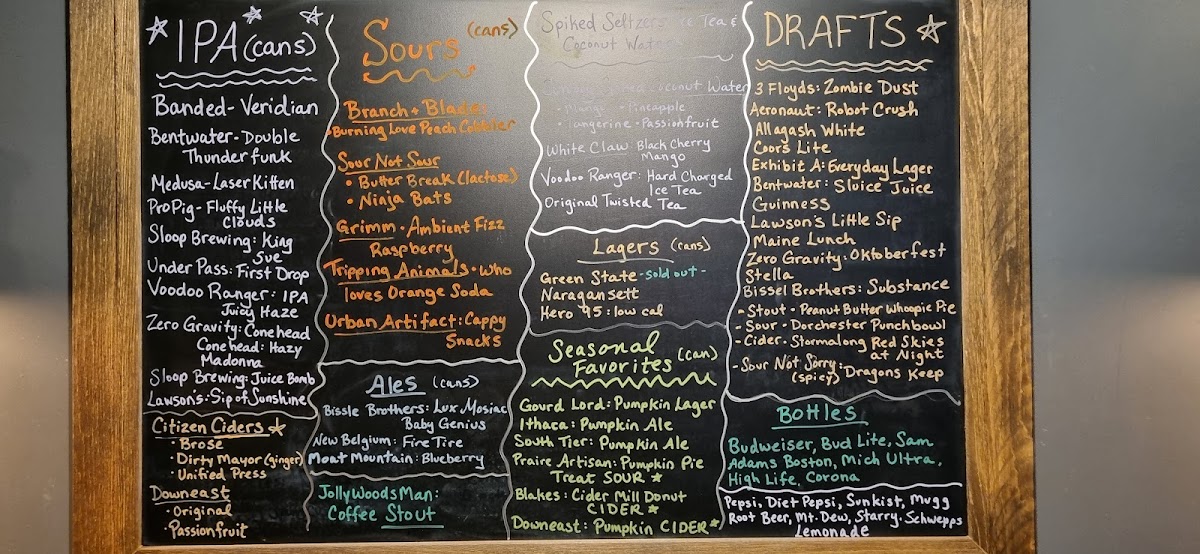 IPA (cans)
Banded - Veridian
Bentwater - Double
Thunder funk
Medusa - Laser Kitten
ProPig - Fluffy Little
Clouds
Sloop Brewing: King
Sue
Under Pass: First Drop
Voodoo Ranger: IPA
Juicy Haze
Zero Gravity: Conehead
Conehead: Hazy
Madonna
Sloop Brewing: Juice Bomb
Lawsons: Sip of Sunshine
Citizen Ciders
• Brose
• Dirty Mayor (ginger)
• Unified Press
Downeast
• Original
• Passionfruit
Sours (cans)
Branch + Blade:
• Burning Love Peach Cobbler
Sour Not Sour
• Butter Break (lactose)
• Ninja Bats
Grimm • Ambient Fizz
Raspberry
Tripping Animals • Who
loves Orange Soda
Urban Artifact: Cappy
Snacks
Ales (cans)
Bissle Brothers: Lux Mosiac
Baby Genius
New Belgium: Fire Tire
Moat Mountain: Blueberry
Jolly Woods Man:
Coffee Stout
Spiked Seltzers Tea &
Coconut Water
Coconut Water
• Mango • Pineapple
• Tangerine • Passionfruit
White Claw Black Cherry
Mango
Voodoo Ranger: Hard Charged
Ice Tea
Original Twisted Tea
Lagers (cans)
Green State - sold out -
Naragansett
Hero 95: low cal
Seasonal
Favorites (can)
Gourd Lord: Pumpkin Lager
Ithaca: Pumpkin Ale
South Tier: Pumpkin Ale
Praire Artisan: Pumpkin Pie
Treat SOUR
Blakes: Cider Mill Donut
CIDER
Downeast: Pumpkin CIDER
DRAFTS
3 Floyds: Zombie Dust
Aeronaut: Robot Crush
Allagash White
Coors Lite
Exhibit A: Everyday Lager
Bentwater: Sluice Juice
Guinness
Lawson's Little Sip
Maine Lunch
Zero Gravity: Oktoberfest
Stella
Bissel Brothers: Substance
- Stout - Peanut Butter Whoopie Pie
- Sour - Dorchester Punchbowl
- Cider - Stormalong Red Skies
at Night
- Sour Not Sorry: Dragons Keep
(spicy)
Bottles
Budweiser, Bud Lite, Sam
Adams Boston, Mich Ultra,
High Life, Corona
Pepsi, Diet Pepsi, Sunkist, Mugg
Root Beer, Mt. Dew, Starry. Schwepps
Lemonade